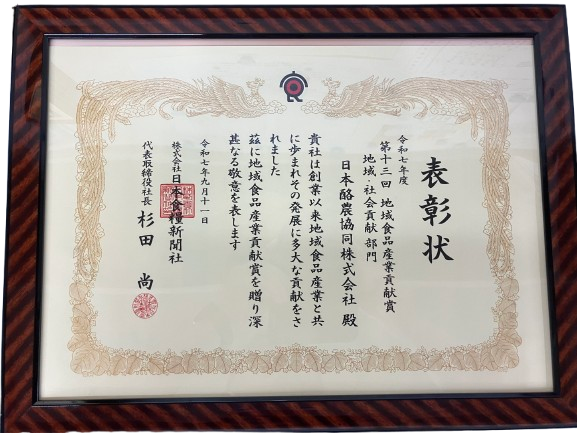 表彰状
令和七年度
第十三回 地域食品産業貢献賞
地域・社会貢献部門
日本酪農協同株式会社 殿
貴社は創業以来地域食品産業と共
に歩まれその発展に多大な貢献をさ
れました
茲に地域食品産業貢献賞を贈り深
甚なる敬意を表します
令和七年九月十一日
株式会社日本食糧新聞社
代表取締役社長 杉田 尚